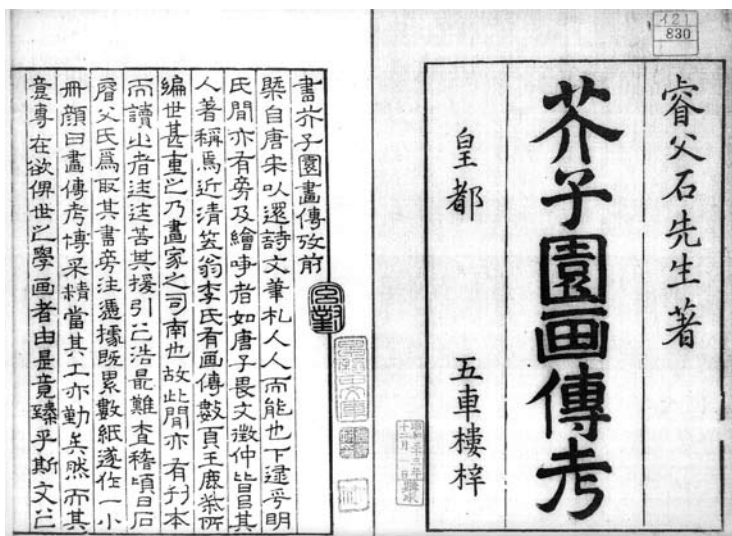 イ21
830
睿父石先生著
芥子園画傳考
皇都
五車樓梓
書芥子園畫傳攷前
槩自唐宋以還詩文筆札人人而能也下逮乎明
氏間亦有旁及繪事者如唐子畏文徵仲皆其
人著稱焉近清笠翁李氏有画傳數百王鹿柴所
編世甚重之乃畫家之司南也故此間亦有刊本
而讀之者往往苦其援引之浩最難査稽頃日石
睿父氏爲取其書旁注憑據既累數紙遂作一小
冊顏曰畫傳考博采精當其工亦勤矣然而其
意專在欲俾世之學画者由是竟臻乎斯文之